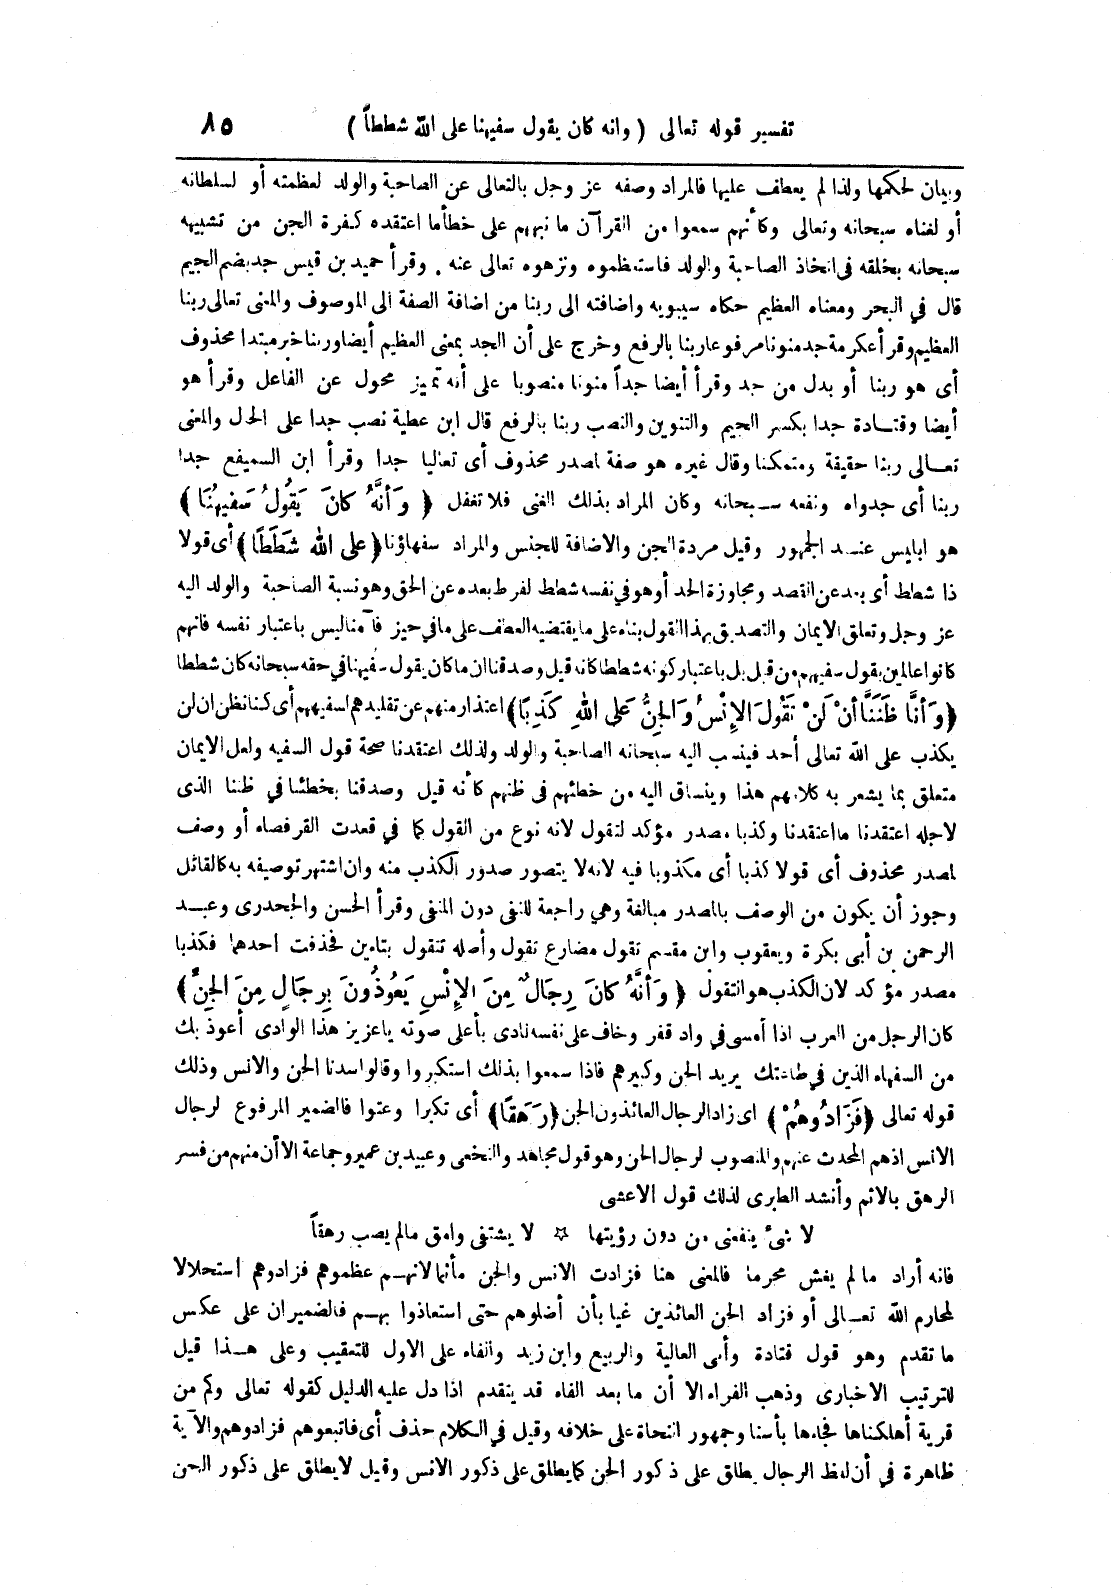 تفسير قوله تعالى ( وانه كان يقول سفيهنا على الله شططاً ) ٨٥
وبيان لحكمها ولذا لم يعطف عليها فالمراد وصفه عز وجل بالتعالى عن الصاحبة والولد لعظمته أو لسلطانه
أو لغناه سبحانه وتعالى وكأنهم سمعوا من القرآن ما نبههم على خطأ ما اعتقده كفرة الجن من تشبيهه
سبحانه بخلقه فى اتخاذ الصاحبة والولد فاستعظموه ونزهوه تعالى عنه . وقرأ حميد بن قيس جد بضم الجيم
قال في البحر ومعناه العظيم حكاه سيبويه واضافته الى ربنا من اضافة الصفة الى الموصوف والمعنى تعالى ربنا
العظيم وقرأ عكرمة جد منونا مرفوعا ربنا بالرفع وخرج على أن الجد بمعنى العظيم أيضا وربنا خبر مبتدا محذوف
أى هو ربنا أو بدل من جد وقرأ أيضا جداً منونا منصوبا على أنه تمييز محول عن الفاعل وقرأ هو
أيضا وقتادة جدا بكسر الجيم والتنوين والنصب ربنا بالرفع قال ابن عطية نصب جدا على الحال والمعنى
تعالى ربنا حقيقة ومتمكنا وقال غيره هو صفة لمصدر محذوف أى تعاليا جدا وقرأ ابن السميفع جدا
ربنا أى جدواه ونفعه سبحانه وكان المراد بذلك الغنى فلا تغفل ﴿ وَأَنَّهُ كانَ يَقُولُ سَفيهُنَا ﴾
هو ابليس عند الجمهور وقيل مردة الجن والاضافة للجنس والمراد سفهاؤنا ﴿ على الله شَطَطًا ﴾ أى قولا
ذا شطط أى بعد عن القصد ومجاوزة الحد أو هو في نفسه شطط لفرط بعده عن الحق وهو نسبة الصاحبة والولد اليه
عز وجل وتعلق الايمان والتصديق بهذا القول بناء على ما يقتضيه العطف على ما في حيز فآمنا ليس باعتبار نفسه فانهم
كانوا عالمين بقول سفيههم من قبل بل باعتبار كونه شططا كانه قيل وصدقنا ان ما كان يقول سفيهنا في حقه سبحانه كان شططا
﴿ وَأَنَّا ظَنَنَّا أَنْ لَنْ تَقُولَ الإِنْسُ وَالجِنُّ عَلى اللهِ كَذِبًا ﴾ اعتذار منهم عن تقليدهم لسفيههم أى كنا نظن ان لن
يكذب على الله تعالى أحد فينسب اليه سبحانه الصاحبة والولد ولذلك اعتقدنا صحة قول السفيه ولعل الايمان
متعلق بما يشعر به كلامهم هذا وينساق اليه من خطئهم فى ظنهم كأنه قيل وصدقنا بخطئنا في ظننا الذى
لاجله اعتقدنا ما اعتقدنا وكذبا مصدر مؤكد لتقول لانه نوع من القول كما في قعدت القرفصاء أو وصف
لمصدر محذوف أى قولا كذبا أى مكذوبا فيه لانه لا يتصور صدور الكذب منه وان اشتهر توصيفه به كالقائل
وجوز أن يكون من الوصف بالمصدر مبالغة وهي راجعة للنفى دون المنفى وقرأ الحسن والجحدرى وعبد
الرحمن بن أبى بكرة ويعقوب وابن مقسم تقول مضارع تقول وأصله تتقول بتاءين فحذفت احدهما فكذبا
مصدر مؤكد لان الكذب هو التقول ﴿ وَأَنَّهُ كانَ رِجَالٌ مِنَ الإِنْسِ يَعُوذُونَ بِرِجَالٍ مِنَ الجِنِّ ﴾
كان الرجل من العرب اذا أمسى في واد قفر وخاف على نفسه نادى بأعلى صوته يا عزيز هذا الوادى أعوذ بك
من السفهاء الذين في طاعتك يريد الجن وكبيرهم فاذا سمعوا بذلك استكبروا وقالوا سدنا الجن والانس وذلك
قوله تعالى ﴿ فَزَادُوهُمْ ﴾ اى زاد الرجال العائذون الجن ﴿ رَهَقًا ﴾ أى تكبرا وعتوا فالضمير المرفوع لرجال
الانس اذ هم المحدث عنهم والمنصوب لرجال الجن وهو قول مجاهد والنخعى وعبيد بن عمير وجماعة الا أن منهم من فسر
الرهق بالاثم وأنشد الطبرى لذلك قول الاعشى
لا شىء ينفعنى من دون رؤيتها ☆ لا يشتفى وامق مالم يصب رهقاً
فانه أراد ما لم يغش محرما فالمعنى هنا فزادت الانس والجن مأثما لانهم عظموهم فزادوهم استحلالا
لمحارم الله تعالى أو فزاد الجن العائذين غيا بأن أضلوهم حتى استعاذوا بهم فالضميران على عكس
ما تقدم وهو قول قتادة وأبى العالية والربيع وابن زيد والفاء على الاول للتعقيب وعلى هذا قيل
للترتيب الاخبارى وذهب الفراء الا أن ما بعد الفاء قد يتقدم اذا دل عليه الدليل كقوله تعالى وكم من
قرية أهلكناها فجاءها بأسنا وجمهور النحاة على خلافه وقيل في الكلام حذف أى فاتبعوهم فزادوهم والآية
ظاهرة في أن لفظ الرجال يطلق على ذكور الجن كما يطلق على ذكور الانس وقيل لا يطلق على ذكور الجن